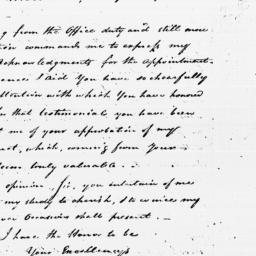 from the Office duty and still more
commands me to express my
acknowledgments for the appointment
aid You have so chearfully
attention with which You have honored
that testimonials you have been
me of your approbation of my
which, coming from Yours
truly valuable.
opinion, Sir, you entertain of me
my study to cherish, & to evince my
Occasions shall present.
I have the Honor to be
Your Excellency's